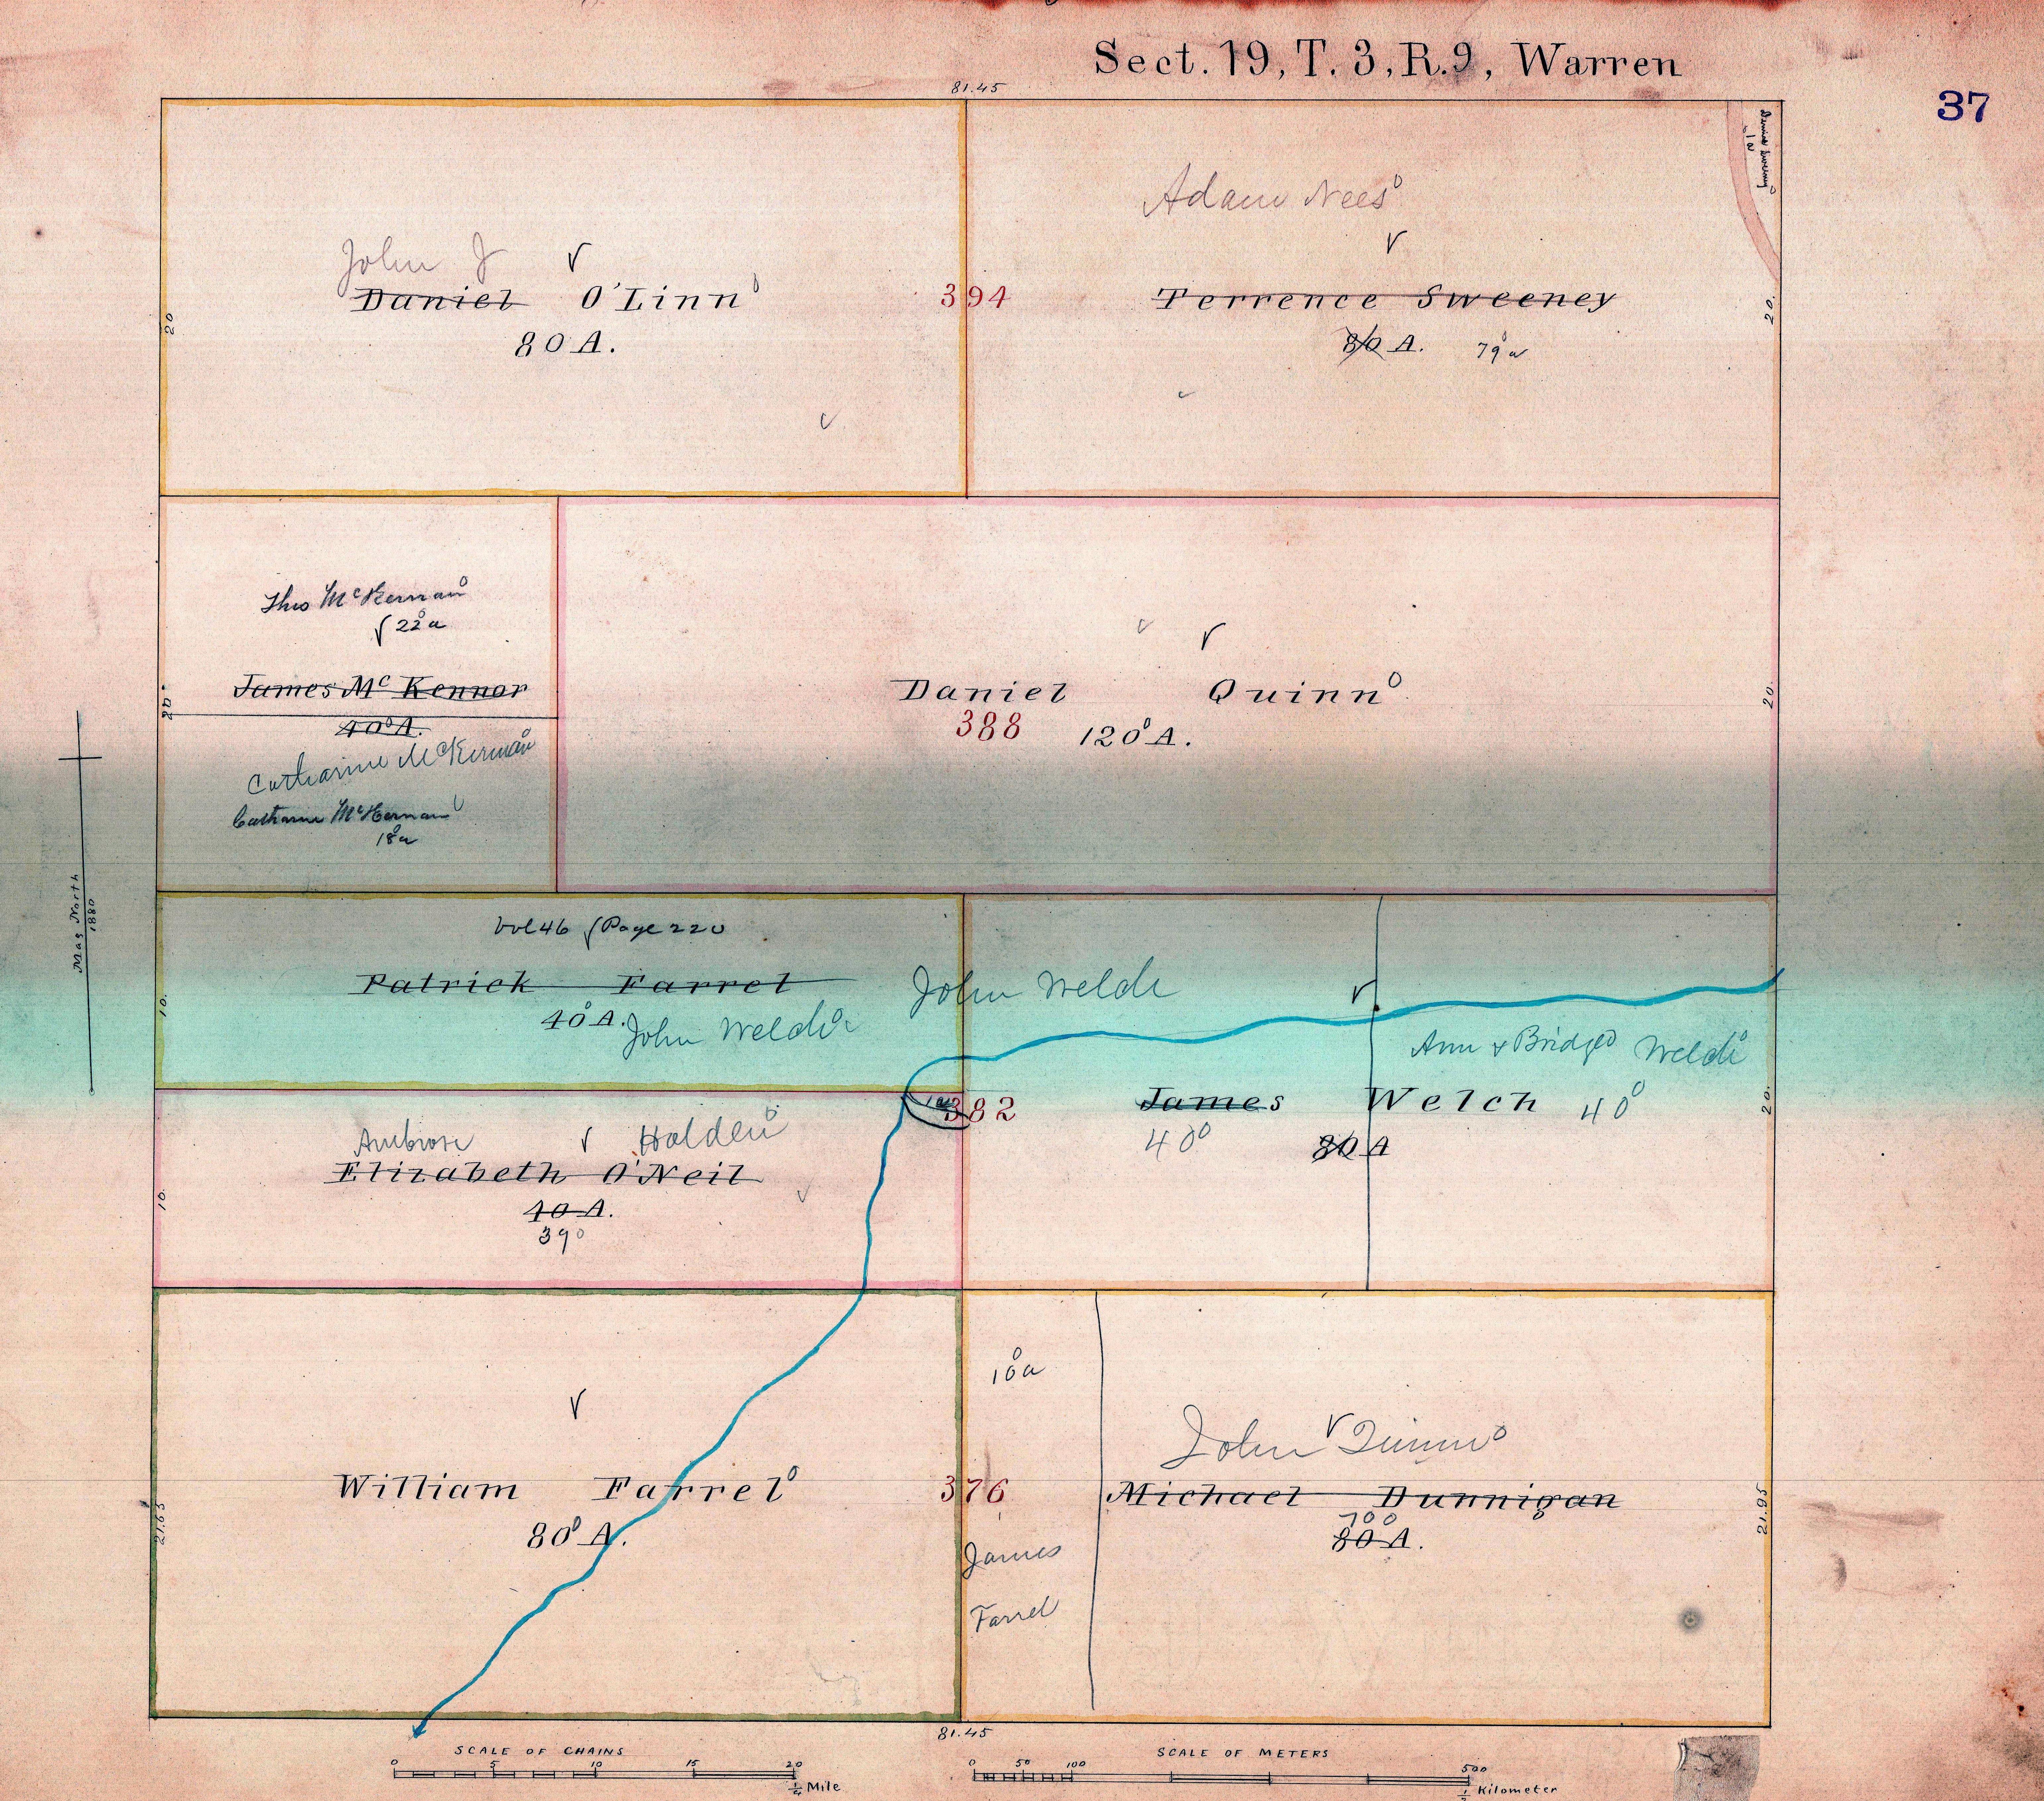 Sect. 19, T. 3, R. 9, Warren
37
81.45
Dennis Sweeney
1a
Adam Nees
John J
Daniel O'Linn
80 A.
394
Terrence Sweeney
80 A. 79 a
20
20.
Thos McKernan
22 a
James Mc Kennor
40 A.
Catharine McKernan
Catharine McKernan
18 a
20
Daniel Quinn
388 120 A.
20.
Mag North
1880
Vol 46 Page 220
Patrick Farrel
40 A.
John Welch
John Welch
10.
Ann & Bridget Welch
James Welch 40
40 80 A
382
1 a
20.
Ambrose Holden
Elizabeth O'Neil
40 A.
39
10.
William Farrel
80 A.
21.65
10 a
376
James
Farrel
John Quinn
Michael Dunnigan
70
80 A.
21.95
81.45
SCALE OF CHAINS
0 5 10 15 20
1/4 Mile
SCALE OF METERS
0 50 100 500
1/2 Kilometer